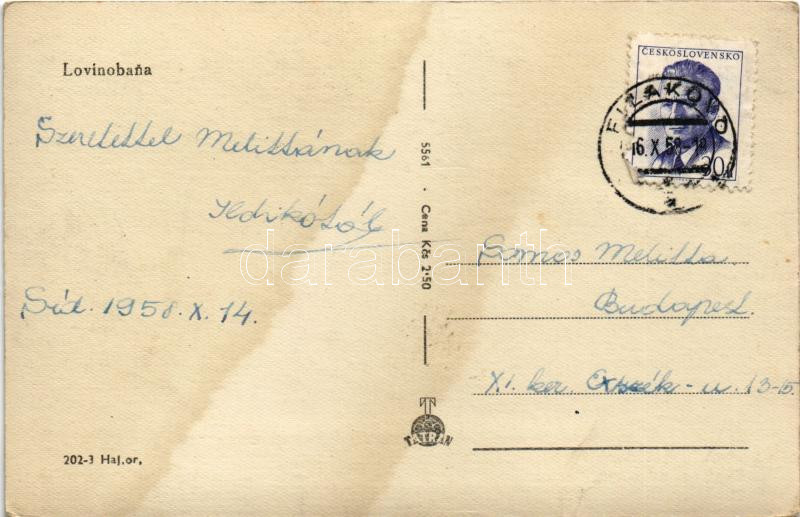 Lovinobaňa
Szeretettel Melittának
Ildikótól
1958. X. 14.
202-3 Haj.or.
5561 · Cena Kčs 2·50
TATRAN
ČESKOSLOVENSKO
30
FIĽAKOVO
16. X. 58-18
Somos Melitta
Budapest.
XI. ker. - u. 13-15
darabanth.com